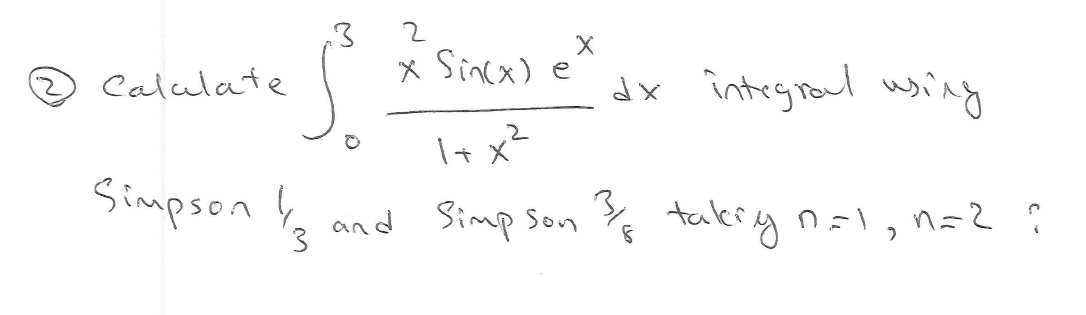 ② Calculate ∫₀³ x² Sin(x) eˣ / 1+x² dx integral using
Simpson 1/3 and Simpson 3/8 taking n=1, n=2 ?